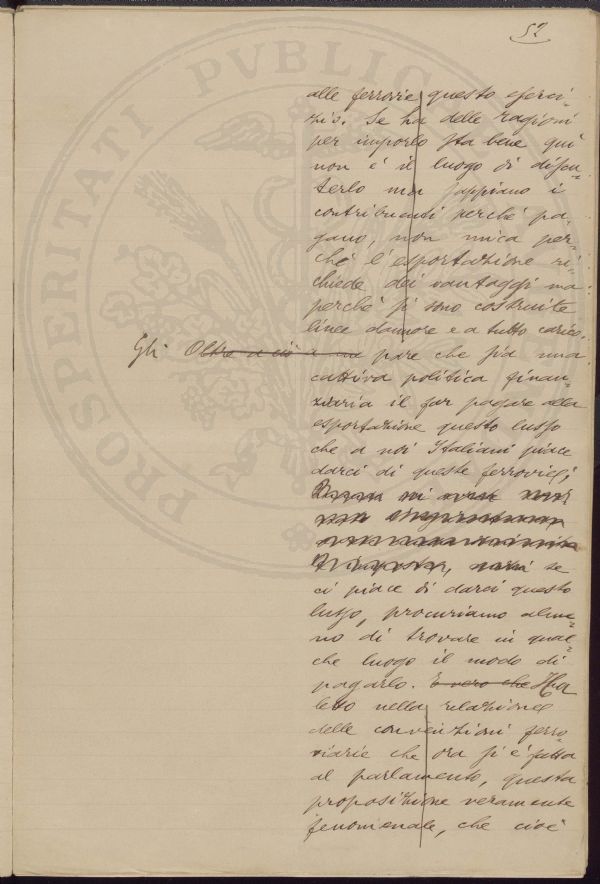 52
alle ferrovie questo eserci-
zio. Se ha delle ragioni
per imporlo sta bene qui
non è il luogo di discu-
terlo ma sappiano i
contribuenti perché pa-
gano, non mica per-
ché l'esportazione ri-
chiede dei vantaggi ma
perché si sono costruite
linee d'amore e a tutto carico.
Gli Oltre a ciò a me pare che sia una
cattiva politica finan-
ziaria il far pagare alla
esportazione questo lusso
che a noi Italiani piace
darci di queste ferrovie;
se
ci piace di darci questo
lusso, procuriamo alme-
no di trovare in qual-
che luogo il modo di
pagarlo. È vero che Ho
letto nella relazione
delle convenzioni ferro-
viarie che ora si è fatta
al parlamento, questa
proposizione veramente
fenomenale, che cioè
PROSPERITATI PVBLICAE